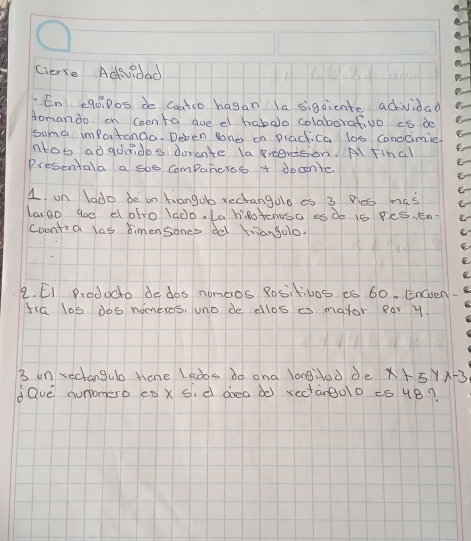 Cierre Actividad
· En equipos de cuatro hagan la siguiente actividad
tomando en cuenta que el trabajo colaborativo es de
suma importando. Deben poner en practica los conocimie-
ntos adquiridos durante la progresion. Al Final
Presentala a sus compañeros y docente.
1. un lado de un triangulo rectangulo es 3 Pies mas
largo que el otro lado. La hipotenusa es de 15 pies. En-
cuentra las dimensones del triangulo.
2. El Producto de dos numeros Positivos es 60. Encuen-
tra los dos números. uno de ellos es mayor por 4
3 un rectangulo tiene Lados de una longitud de x+5 y x-3
¿Qué nunumero es x si el área del rectángulo es 48?